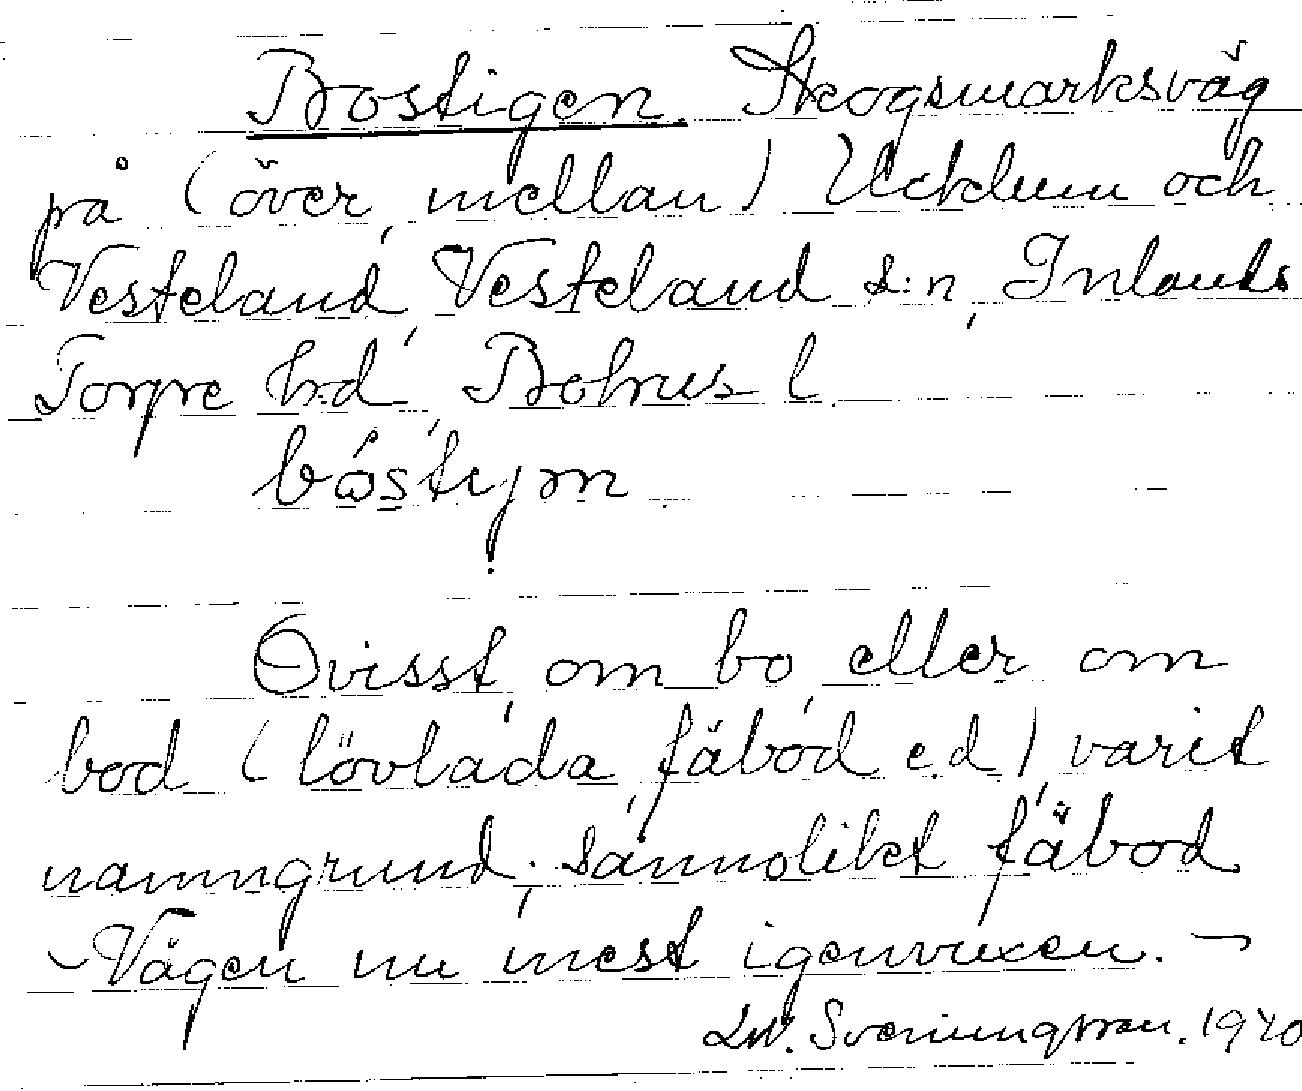 Bostigen. Skogsmarksväg
på (över, mellan) Ucklum och
Vesteland, Vesteland s:n, Inlands
Torpe h:d, Bohus l.
Ovisst, om bo, eller om
bod (lövlada, fäbod e.d.), varit
namngrund; sannolikt fäbod
- Vägen nu mest igenvuxen. -
1940